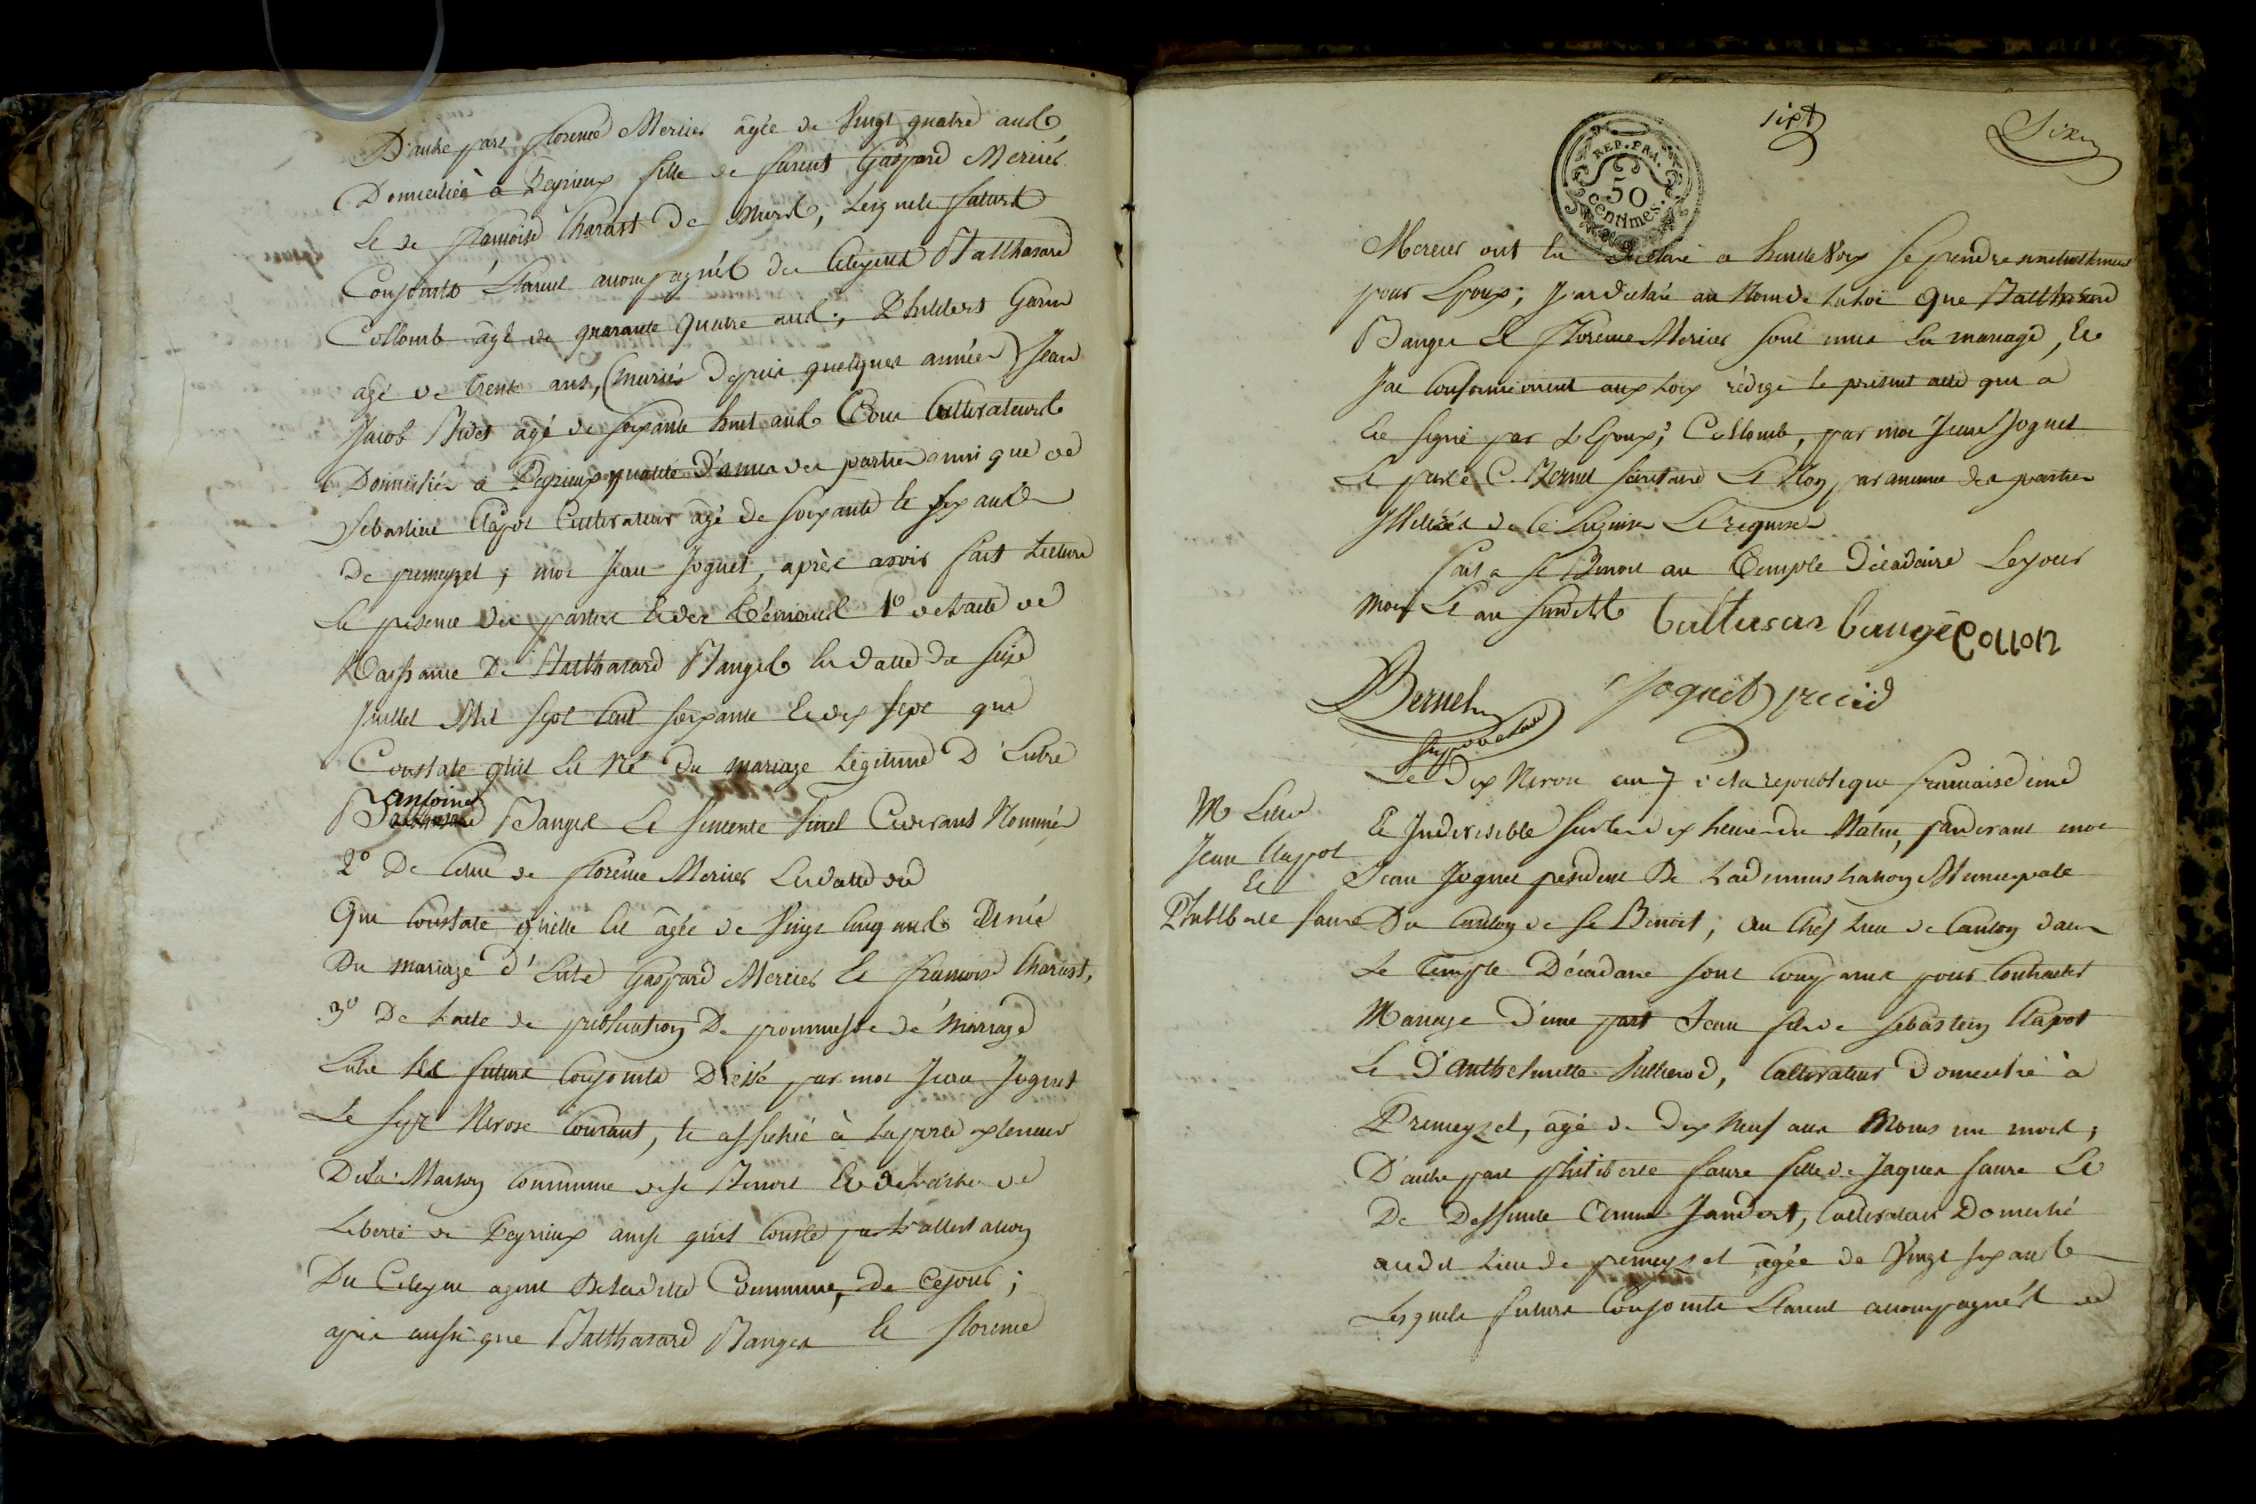 D'autre part florence Mercier agée de Vingt quatre ans
Domiciliée à Peyrieux fille de furent Gaspard Mercier
Et de françoise Charast De Murs, Lesquels futurs
Conjoints Etaient accompagnés des Citoyens Balthasard
Collomb agé de quarante quatre ans; Philibert Garin
agé de trente ans, (mariés depuis quelques années) Jean
Jacob Bidet agé de soixante huit ans Tous Cultivateurs
Domiciliés à Peyrieux qualité d'amis des parties ainsi que de
Sébastien Clapot Cultivateur agé de soixante et six ans
De premeyzel; moi Jean Joguet, après avoir fait Lecture
En présence des parties Et des témoins 1º de l'acte de
Naissance De Balthasard Banges En datte du Seize
Juillet Mil sept Cent soixante Et dix sept qui
Constate qu'il Est Né du mariage Légitime D'Entre
antoine
Balthasard Banges Et Cidevant Nommés
2º De Celui de florence Mercier En datte du
Qui Constate qu'elle Est agée de Vingt Cinq ans Et née
Du mariage d'Entre Gaspard Mercier Et françoise Charast,
3º De L'acte de publication De promesse de Mariage
Entre Les futurs Conjoints Dressé par moi Jean Joguet
Le six Nivose Courant, Et affiché à La porte extérieur
De La Maison Commune de St Benoit Et de L'arbre de
Liberté de Peyrieux ainsi qu'il Conste par L'attestation
Du Citoyen agent De Laditte Commune, de Cejour;
après aussi que Balthasard Banges Et florence
sixt
Six
REP. FRA.
50
centimes.
Mercier ont Eu déclaré a haute Voix se prendre mutuellement
pour Epoux; J'ai déclaré au Nom de la Loi Que Balthasard
Banges Et florence Mercier sont unis En mariage, Et
J'ai Conformément aux Loix rédigé le présent acte qui a
Eté signé par L'Epoux, Collomb, par moi Jean Joguet
Et par le C. Bernel secrétaire Et Non par aucune des parties
Illitérés de Ce Enquises Et requises
fait a St Benoit au Temple Décadaire Les jour
Mois Et an susdits
baltasar bangé Collon
Bernel
Joguet presid
Le Dix Nivose an 7 de la republique française une
Et Indivisible sur les dix heures du Matin, pardevant moi
M Entre
Jean Clappot
Et
Philiberte faure
Jean Joguet président De L'administration Municipale
Du Canton de St Benoit; au Chef Lieu de Canton dans
Le Temple Décadaire sont Comparus pour Contracter
Mariage d'une part Jean fils de Sébastien Clapot
Et D'anthelmette, Cultivateur Domicilié à
Premeyzel, agé de dix neuf ans Moins un mois;
D'autre part philiberte faure fille de Jaques faure Et
De Deffunte, Cultivateur Domicilié
audit Lieu de premeyzel agée de Vingt six ans
Lesquels futurs Conjoints Etaient accompagnés de